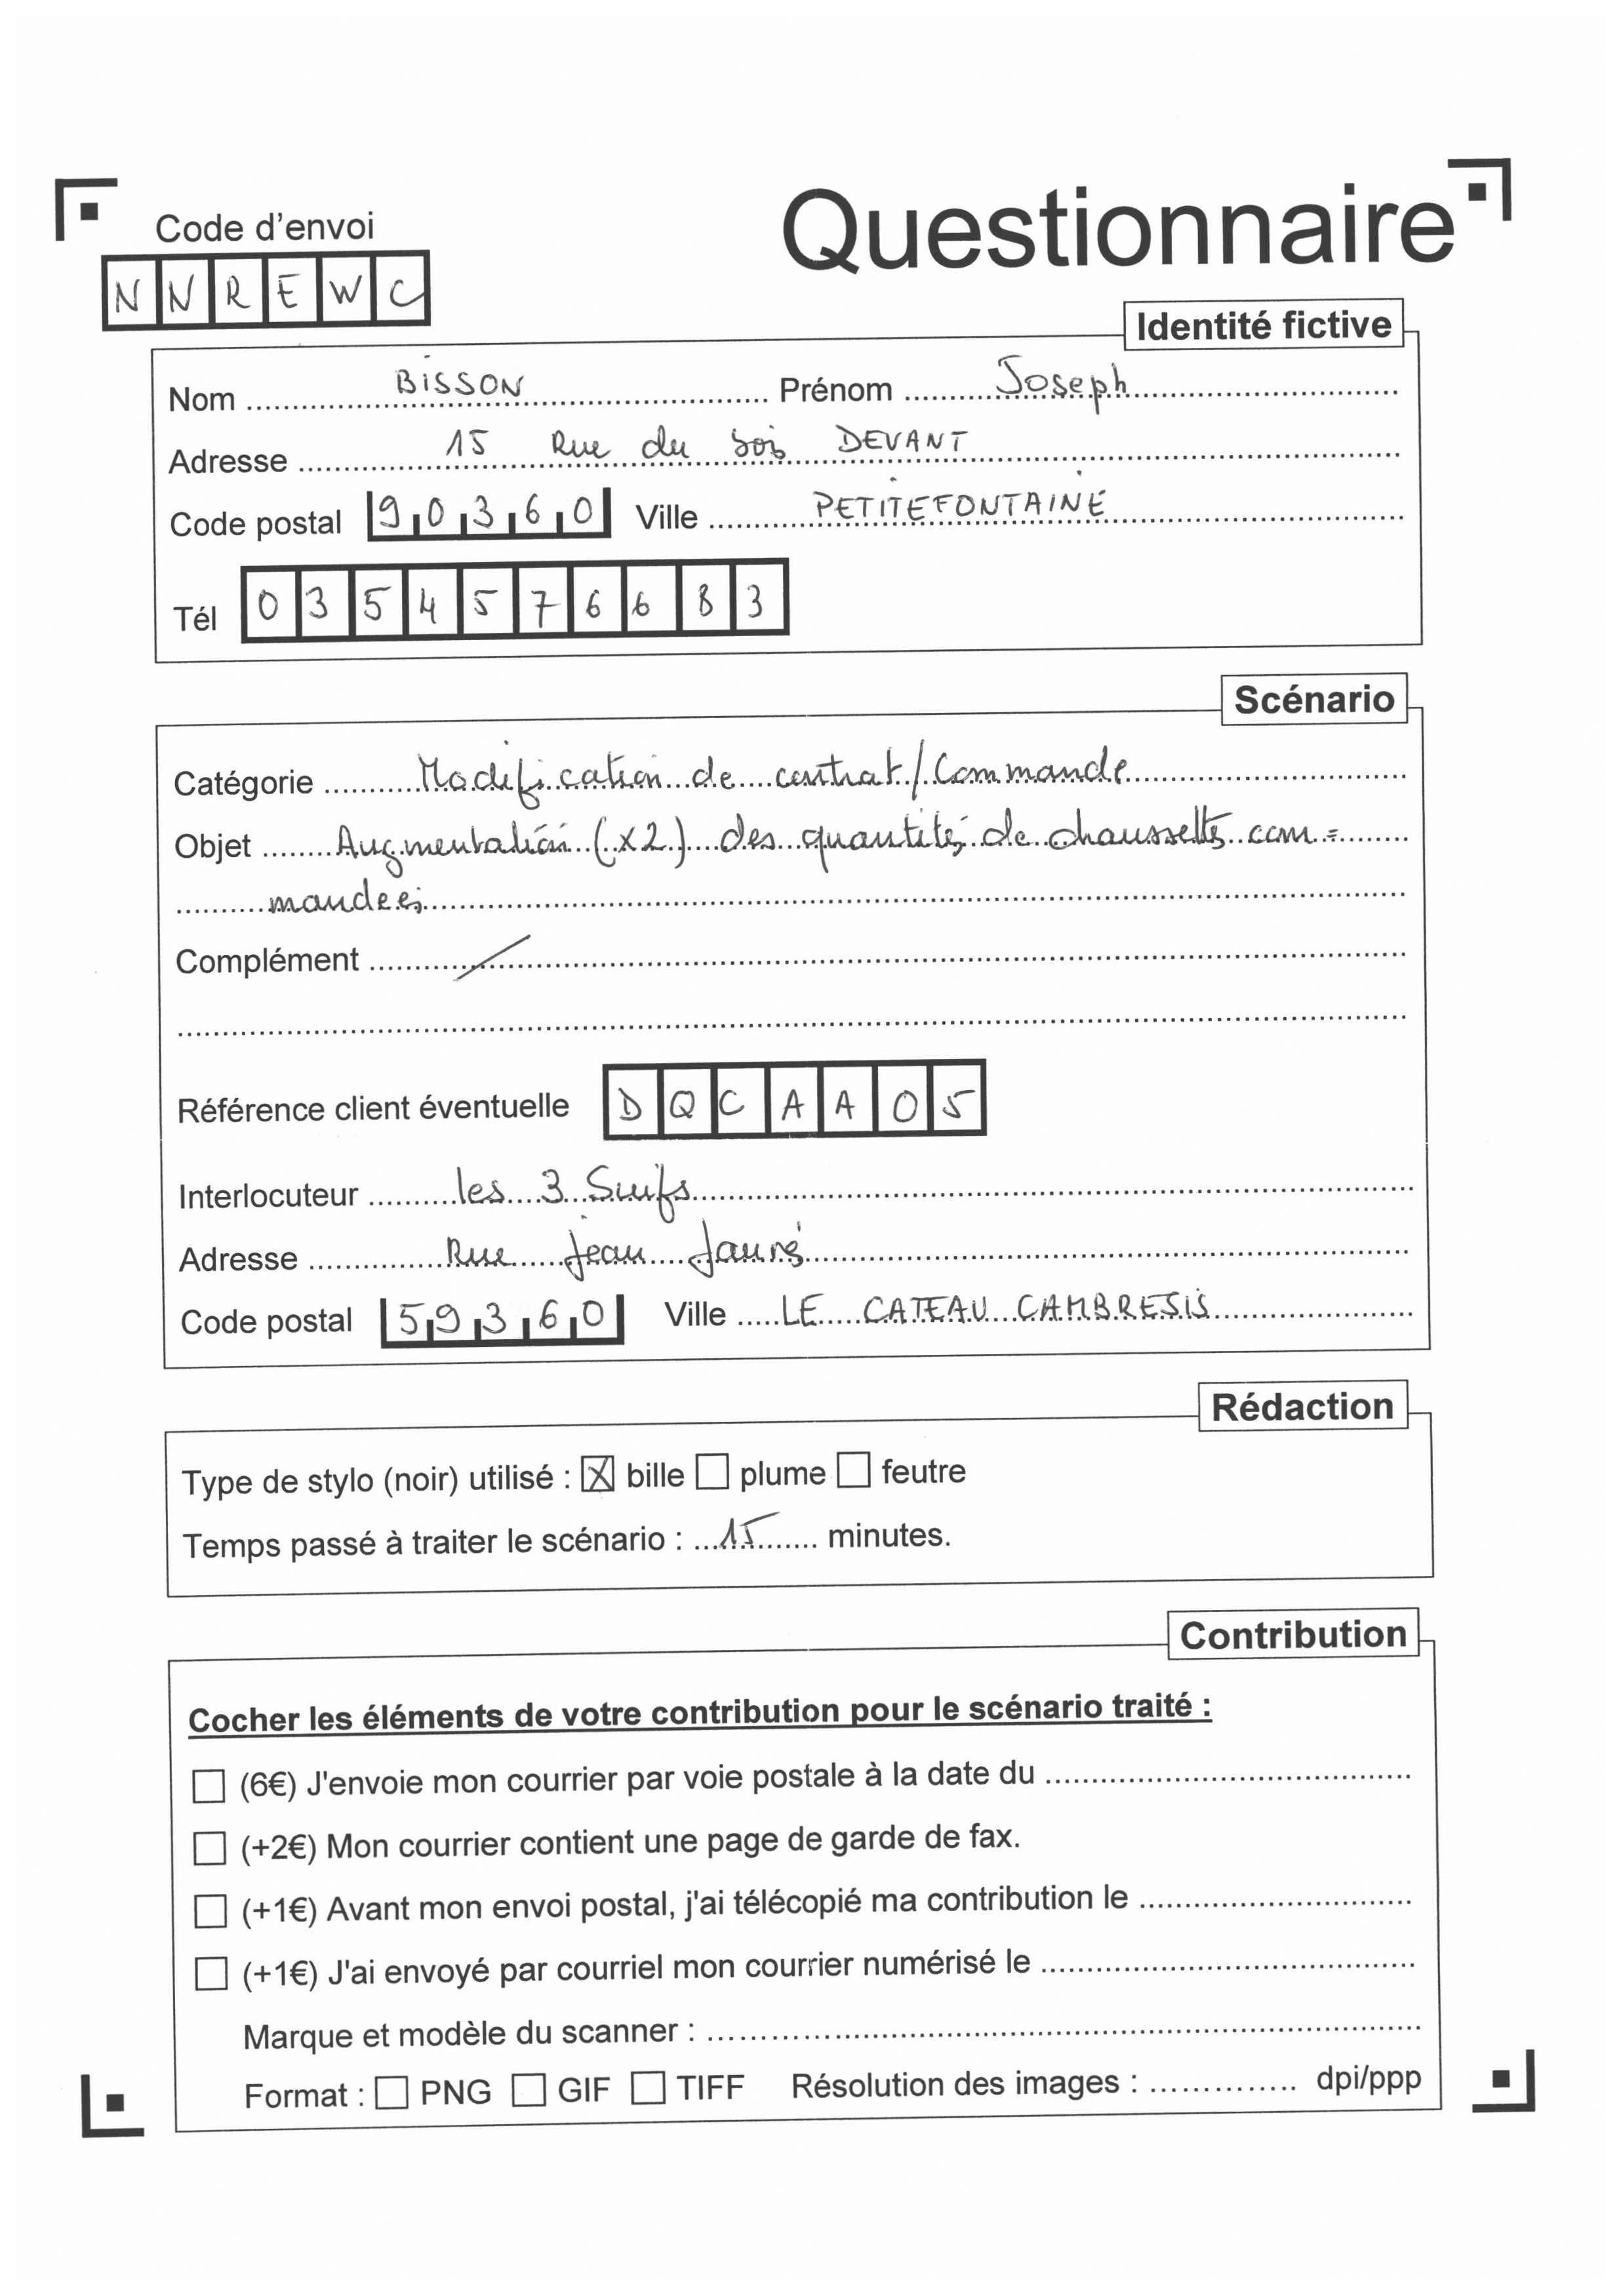 Questionnaire
Code d'envoi
NNREWC
Identité fictive
Nom BISSON Prénom Joseph
Adresse 15 Rue du bois DEVANT
Code postal 90360 Ville PETITEFONTAINE
Tél 0354576683
Scénario
Catégorie Modification de contrat/Commande
Objet Augmentation (x2) des quantités de chaussettes com=
mandées
Complément /
Référence client éventuelle DQCAA05
Interlocuteur les 3 Suifs
Adresse Rue Jean Jaurès
Code postal 59360 Ville LE CATEAU CAMBRESIS
Rédaction
Type de stylo (noir) utilisé : ☒ bille ☐ plume ☐ feutre
Temps passé à traiter le scénario : 15 minutes.
Contribution
Cocher les éléments de votre contribution pour le scénario traité :
☐ (6€) J'envoie mon courrier par voie postale à la date du
☐ (+2€) Mon courrier contient une page de garde de fax.
☐ (+1€) Avant mon envoi postal, j'ai télécopié ma contribution le
☐ (+1€) J'ai envoyé par courriel mon courrier numérisé le
Marque et modèle du scanner :
Format : ☐ PNG ☐ GIF ☐ TIFF Résolution des images : dpi/ppp